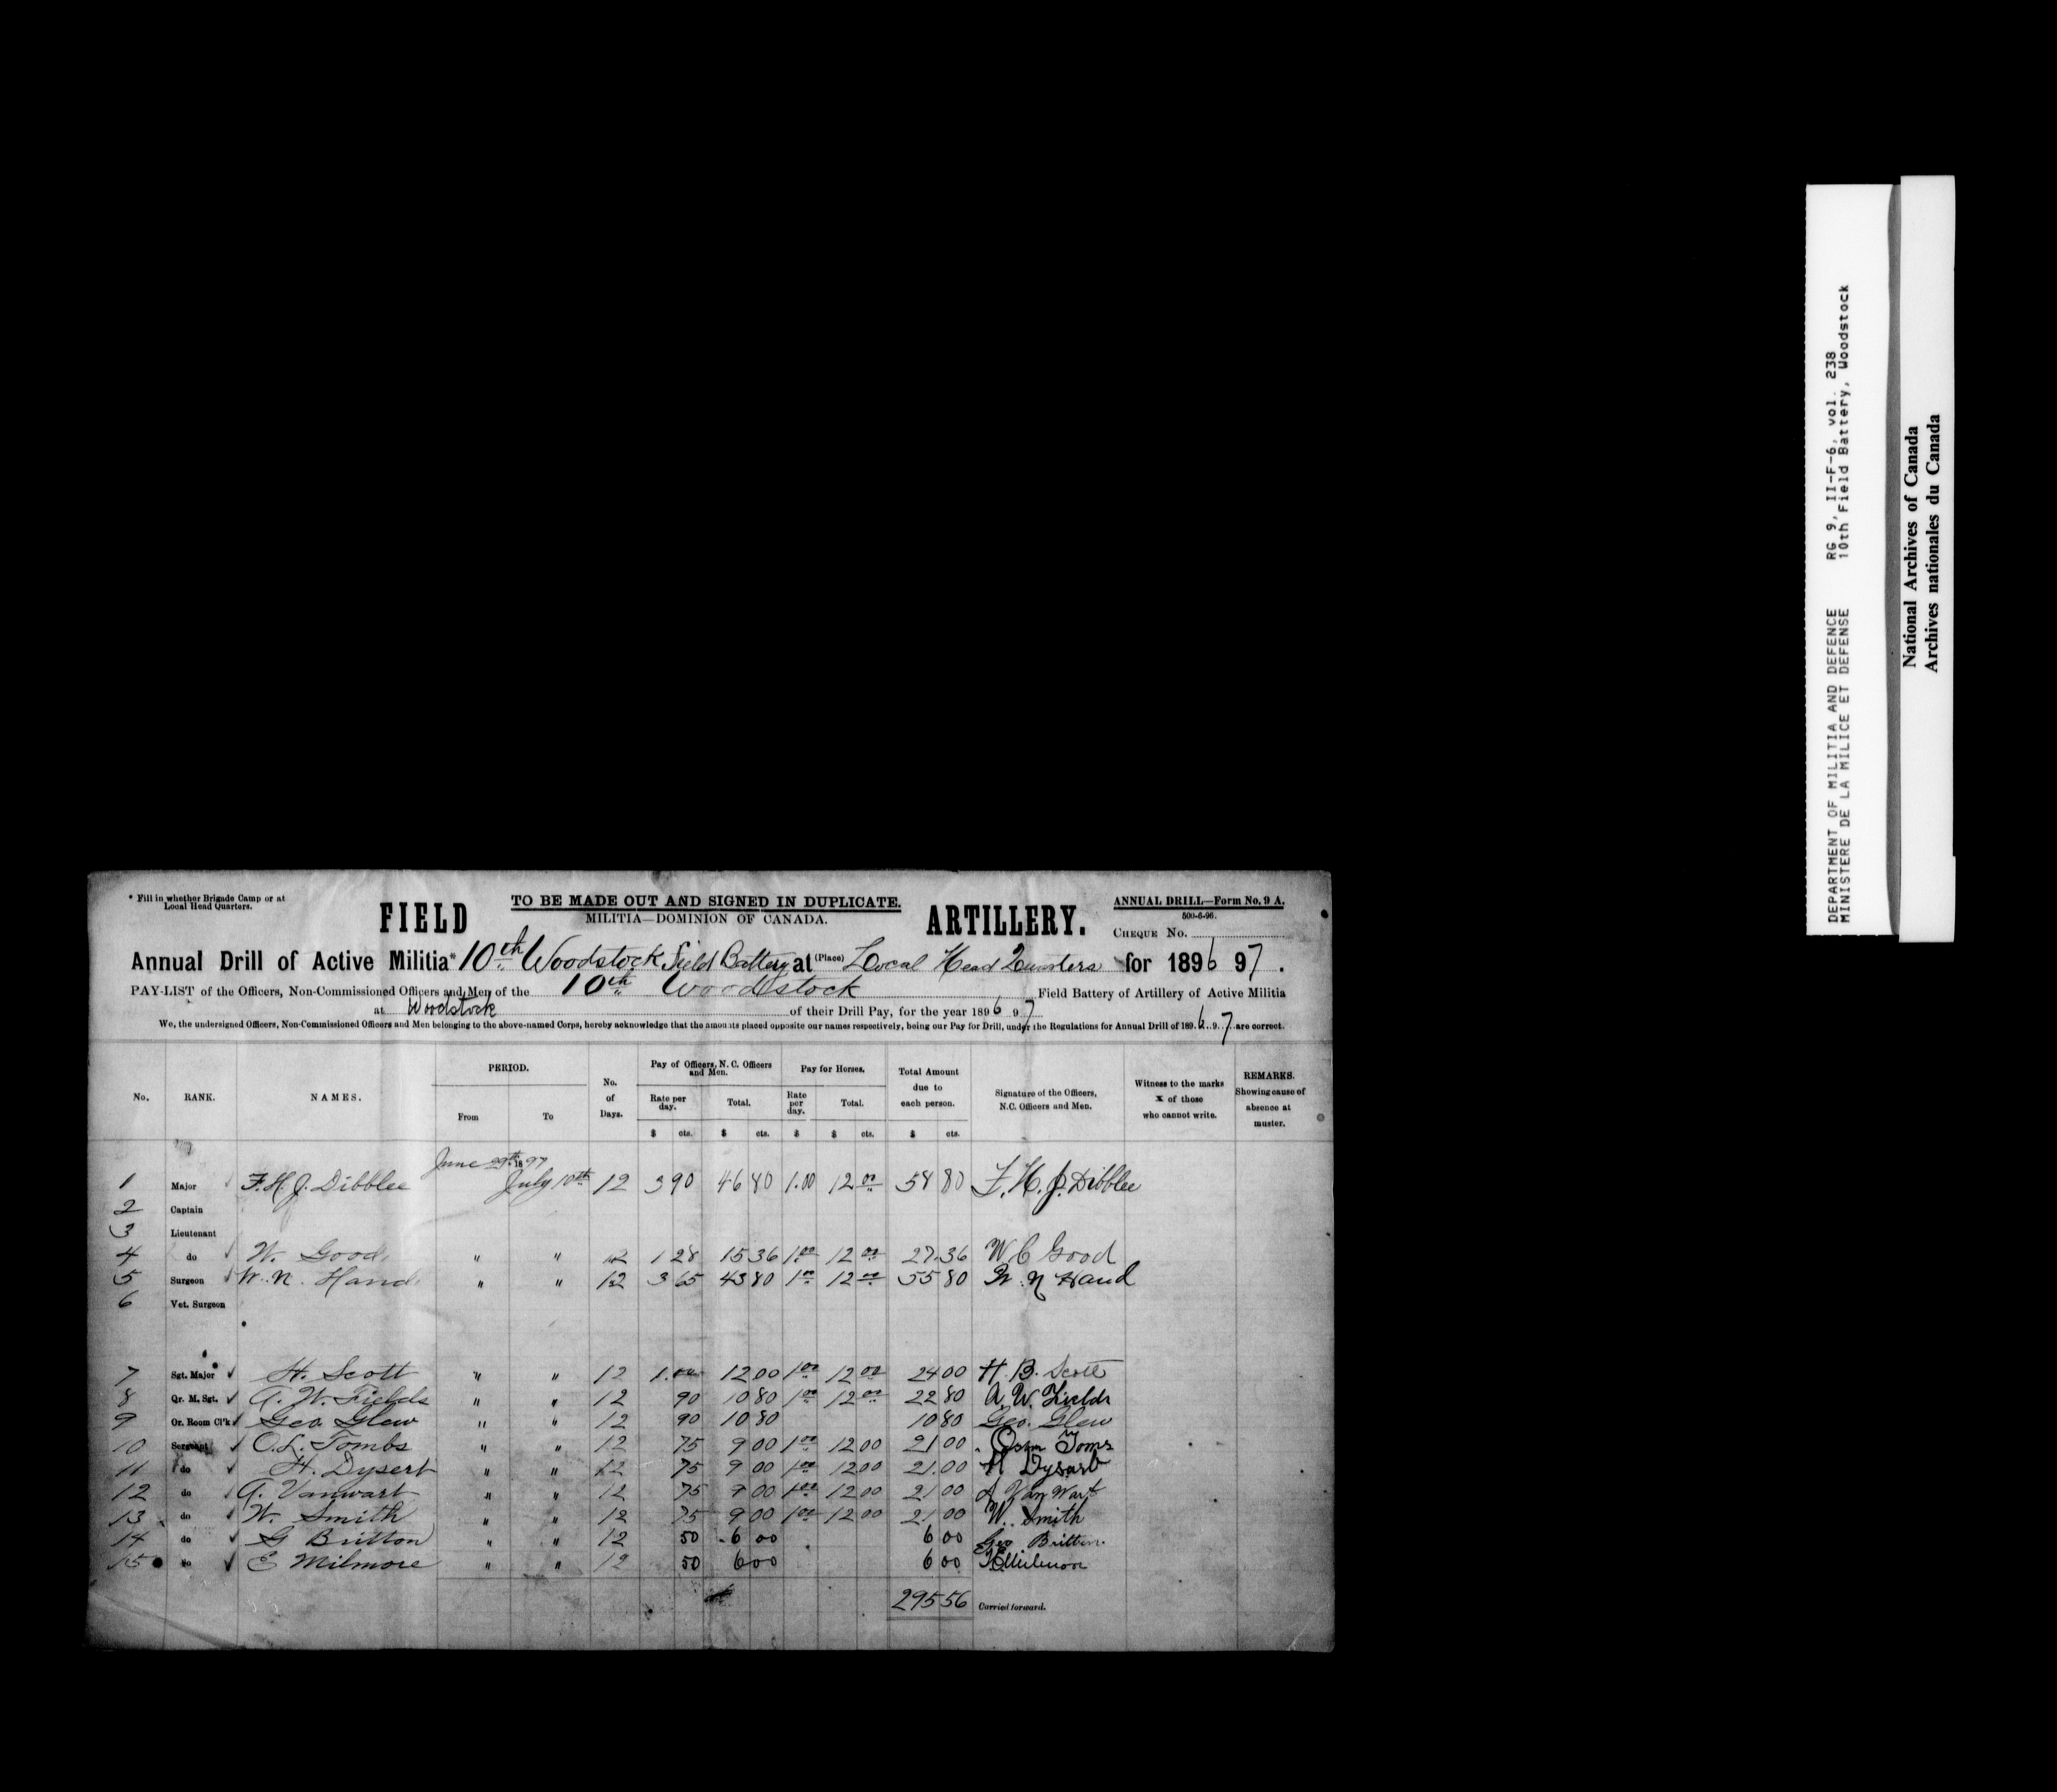 * Fill in whether Brigade Camp or at
Local Head Quarters.
TO BE MADE OUT AND SIGNED IN DUPLICATE.
ANNUAL DRILL—Form No. 9 A.
500-6-96.
FIELD MILITIA—DOMINION OF CANADA. ARTILLERY.
CHEQUE No.
Annual Drill of Active Militia* 10th Woodstock Field Battery at (Place) Local Head Quarters for 1896 97.
PAY-LIST of the Officers, Non-Commissioned Officers and Men of the 10th Woodstock Field Battery of Artillery of Active Militia
at Woodstock of their Drill Pay, for the year 1896 97
We, the undersigned Officers, Non-Commissioned Officers and Men belonging to the above-named Corps, hereby acknowledge that the amounts placed opposite our names respectively, being our Pay for Drill, under the Regulations for Annual Drill of 1896.97 are correct.
No. RANK. NAMES. PERIOD. From To No. of Days. Pay of Officers, N. C. Officers and Men. Rate per day. $ cts. Total. $ cts. Pay for Horses. Rate per day. $ Total. $ cts. Total Amount due to each person. $ cts. Signature of the Officers, N.C. Officers and Men. Witness to the marks X of those who cannot write. REMARKS. Showing cause of absence at muster.
June 29th 1897
1 Major F. H. J. Dibblee July 10th 12 3 90 46 80 1.00 12 00 58 80 F. H. J. Dibblee
2 Captain
3 Lieutenant
4 do W. Good " " 12 1 28 15 36 1.00 12 00 27.36 W C Good
5 Surgeon W. N. Hand " " 12 3 65 43 80 1 00 12 00 55 80 W. N Hand
6 Vet. Surgeon
7 Sgt. Major H. Scott " " 12 1.00 12 00 1 00 12 00 24 00 H. B. Scott
8 Qr. M. Sgt. A. W. Fields " " 12 90 10 80 1 00 12 00 22 80 A. W. Fields
9 Or. Room Cl'k Geo. Glew " " 12 90 10 80 10 80 Geo. Glew
10 Sergeant O. L. Tombs " " 12 75 9 00 1 00 12 00 21 00 Toms
11 do H. Dysert " " 12 75 9 00 1 00 12 00 21.00 H Dysart
12 do A. Vanwart " " 12 75 9 00 1 00 12 00 21 00 A Van Wart
13 do W. Smith " " 12 75 9 00 1 00 12 00 21 00 W. Smith
14 do G Britton " " 12 50 6 00 6 00 Geo Britton
15 do E Milmore " " 12 50 6 00 6 00 Milmore
295 56 Carried forward.
DEPARTMENT OF MILITIA AND DEFENCE RG 9, II-F-6, vol. 238
MINISTERE DE LA MILICE ET DEFENSE 10th Field Battery, Woodstock
National Archives of Canada
Archives nationales du Canada